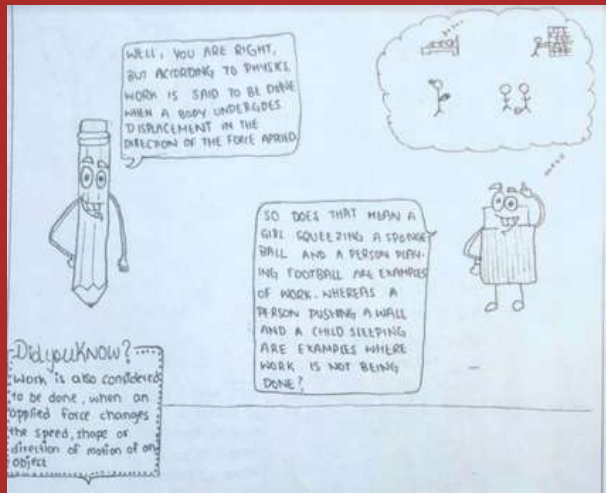 WELL, YOU ARE RIGHT,
BUT ACCORDING TO PHYSICS
WORK IS SAID TO BE DONE
WHEN A BODY UNDERGOES
DISPLACEMENT IN THE
DIRECTION OF THE FORCE APPLIED.
SO DOES THAT MEAN A
GIRL SQUEEZING A SPONGE
BALL AND A PERSON PLAY-
ING FOOTBALL ARE EXAMPLES
OF WORK. WHEREAS A
PERSON PUSHING A WALL
AND A CHILD SLEEPING
ARE EXAMPLES WHERE
WORK IS NOT BEING
DONE?
Did you KNOW?
Work is also considered
to be done, when an
applied force changes
the speed, shape or
direction of motion of an
object